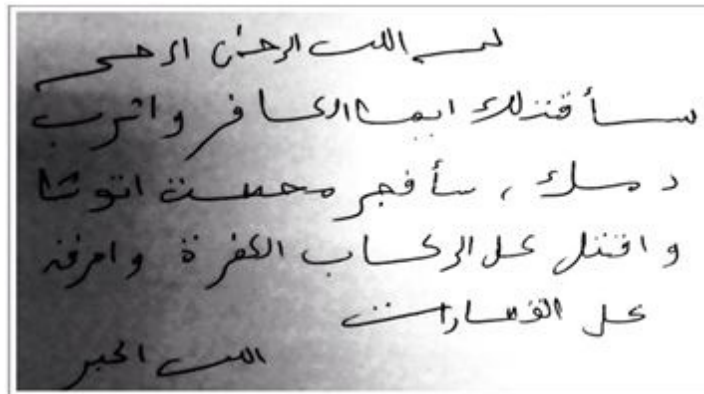 بسم الله الرحمن الرحيم
سأقتلك ايها الكافر واشرب
دمك ، سأفجر محطت اتوشا
واقتل كل الركاب الكفرة وامزق
كل القطارات
الله اكبر